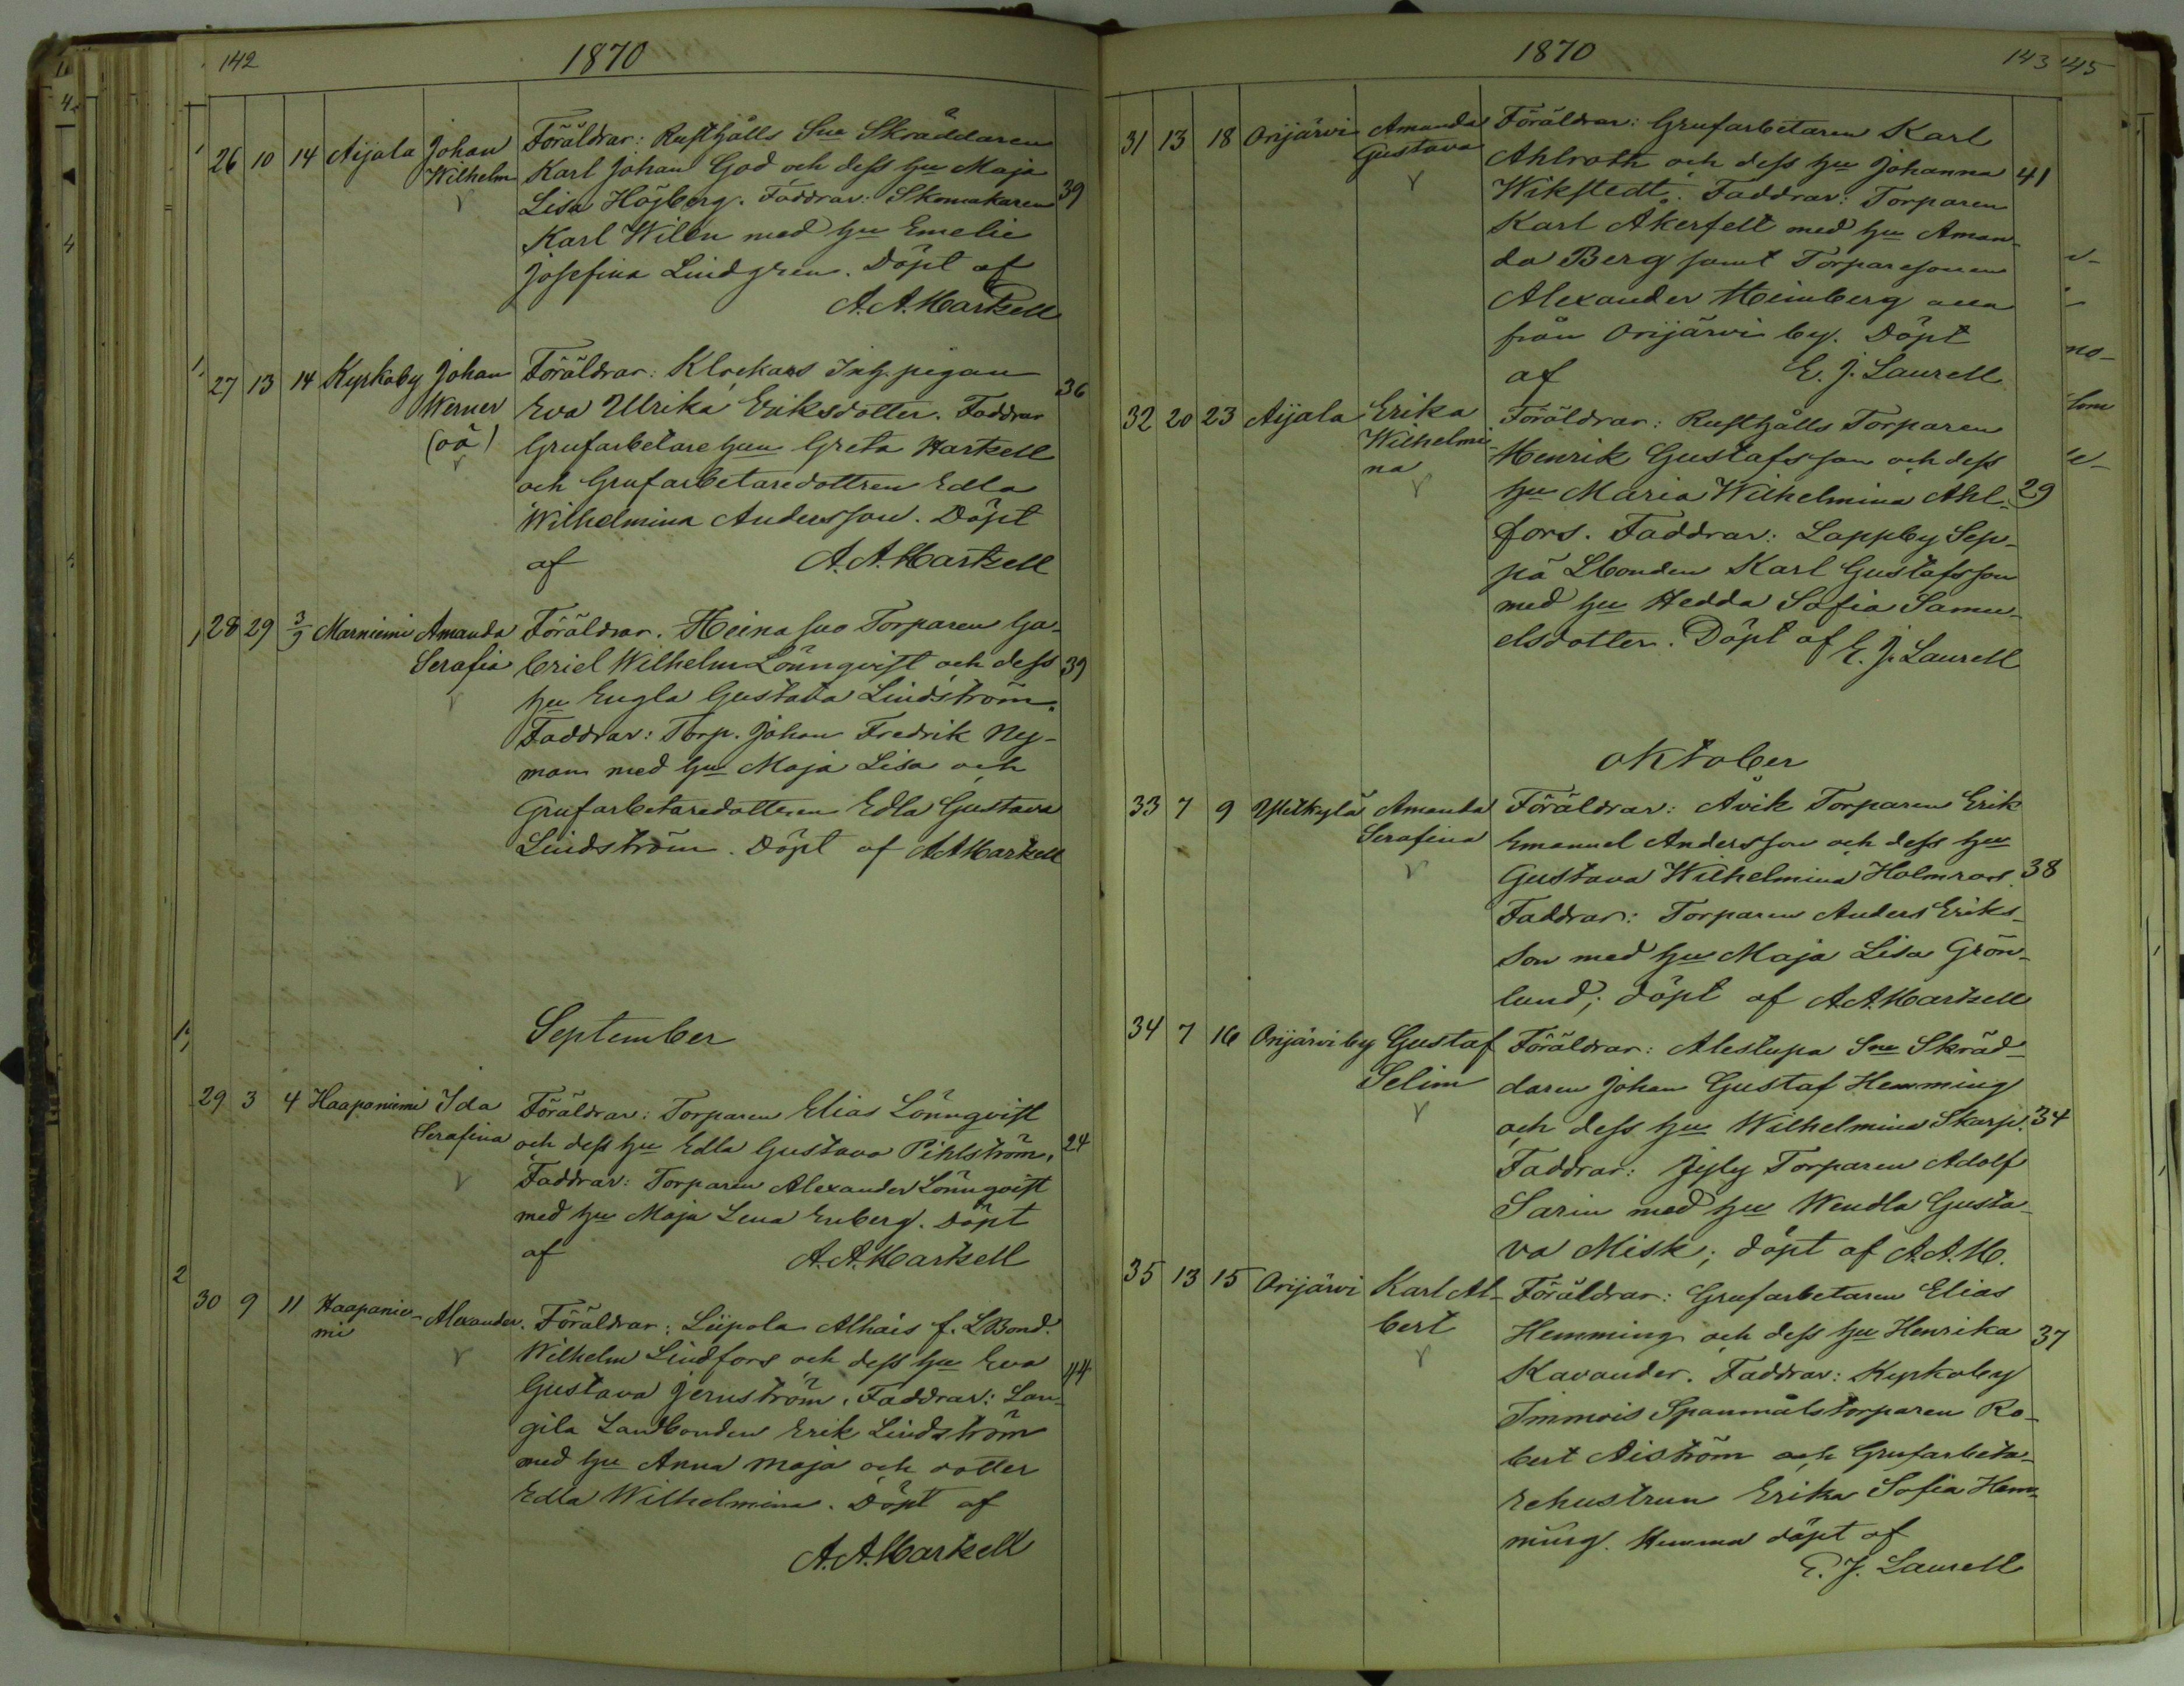 142
1870
26 10 14 Aijala Johan Föräldrar: Rusthålls Sne Skräddaren
Wilhelm Karl Johan God och dess hu Maja
Lisa Höjberg. Faddrar: Skomakaren 39
Karl Wilén med hu Emelie
Josefina Lindgren. Döpt af
A. A. Hartzell
27 13 14 Kyrkoby Johan Föräldrar: Klockars Inh. pigan 36
Werner Eva Ulrika Eriksdotter. Faddrar
(oä) Grufarbetare hun Greta Hartzell
och Grufarbetaredottren Edla
Wilhelmina Andersson. Döpt
af A. A. Hartzell
28 29 3/9 Marniemi Amanda Föräldrar. Heinasuo Torparen Ga-
Serafia briel Wilhelm Lönnqvist och dess 39
hu Engla Gustava Lindström.
Faddrar: Torp. Johan Fredrik Ny-
man med hu Maja Lisa och
Grufarbetaredottren Edla Gustava
Lindström. Döpt af A A Hartzell
September
29 3 4 Haapaniemi Ida Föräldrar: Torparen Elias Lönnqvist
Serafina och dess hu Edla Gustava Pihlström. 24
Faddrar: Torparen Alexander Lönnqvist
med hu Maja Lena Enberg. Döpt
af A. A. Hartzell
30 9 11 Haapanie- Alexander. Föräldrar: Liipola Alhais f. LBond.
mi Wilhelm Lindfors och dess hu Eva 44
Gustava Jernström. Faddrar: Lan-
gila Landbonden Erik Lindström
med hu Anna Maja och dotter
Edla Wilhelmina. Döpt af
A. A. Hartzell
1870
143 145
31 13 18 Orijärvi Amanda Föräldrar: Grufarbetaren Karl
Gustava Ahlroth och dess hu Johanna 41
Wikstedt. Faddrar: Torparen
Karl Åkerfelt med hu Aman-
da Berg samt Torparesonen
Alexander Heimberg alla
från Orijärvi by. Döpt
af E. J. Laurell
32 20 23 Aijala Erika Föräldrar: Rusthålls Torparen
Wilhelmi- Henrik Gustafsson och dess
na hu Maria Wilhelmina Ahl- 29
fors. Faddrar: Lappby Sep-
pä LBonden Karl Gustafsson
med hu Hedda Sofia Samu-
elsdotter. Döpt af E. J. Laurell
Oktober
33 7 9 Ylikylä Amanda Föräldrar: Avik Torparen Erik
Serafina Emanuel Andersson och dess hu
Gustava Wilhelmina Holmroos. 38
Faddrar: Torparen Anders Eriks-
son med hu Maja Lisa Grön-
lund; döpt af A. A. Hartzell
34 7 16 Orijärvi by Gustaf Föräldrar: Alestupa Sne Skräd-
Selim daren Johan Gustaf Hemming
och dess hu Wilhelmina Skarp. 34
Faddrar: Jyly Torparen Adolf
Sarin med hu Wendla Gusta-
va Misk; döpt af A. A. H.
35 13 15 Orijärvi Karl Al- Föräldrar: Grufarbetaren Elias
bert Hemming och dess hu Henrika 37
Kavander. Faddrar: Kyrkoby
Immois Spanmålstorparen Ro-
bert Aiström och Grufarbeta-
rehustrun Erika Sofia Hem-
ming. Hemma döpt af
E. J. Laurell